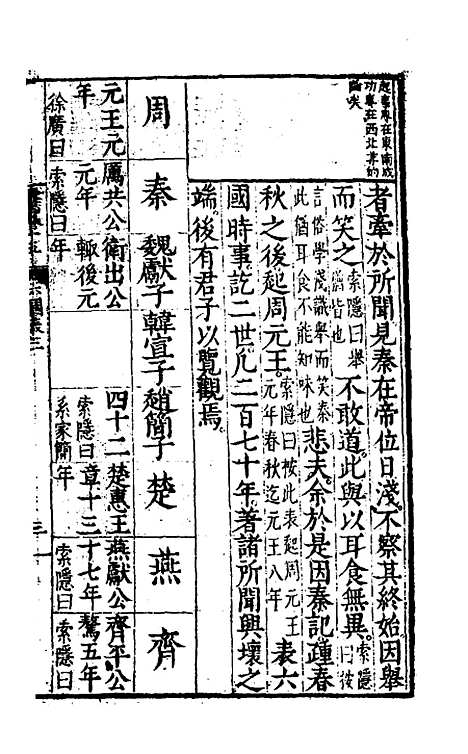 起事專在東南成
功專在西北本始
者牽於所聞見秦在帝位日淺不察其終始因舉
而笑之索隱曰舉猶皆也不敢道此與以耳食無異索隱曰彼
言俗學淺識舉而笑秦此猶耳食不能知味也悲夫余於是因秦記踵春
秋之後起周元王索隱曰按此表起周元王元年春秋迄元王八年表六
國時事訖二世凡二百七十年著諸所聞興壞之
端後有君子以覽觀焉
周
秦
魏獻子
韓宣子
趙簡子
楚
燕
齊
元王元
年
徐廣曰
厲共公
元年
索隱曰
衛出公
輒後元
年
四十二
索隱曰
系家簡
楚惠王
章十三
年
燕獻公
十七年
索隱曰
齊平公
驁五年
索隱曰